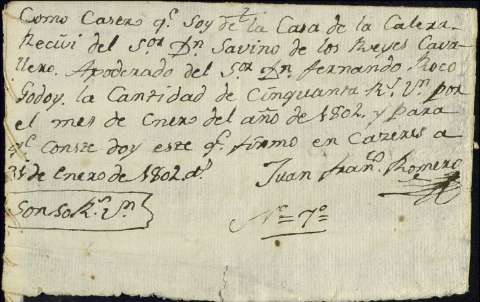 Como Casero q.e soy de la Casa de la Calera.
Recivi del S.or D.n Savino de los Reyes Cava-
llero. Apoderado del S.or D.n fernando Roco
Godoy. la Cantidad de Cinquanta R.s V.n por
el mes de Enero del año de 1802. y para
q.e Conste doy este q.e firmo en Cazeres a
31 de Enero de 1802. a.s
Juan fran.co Romero
Son 50 R.s V.n
N.o 7.o